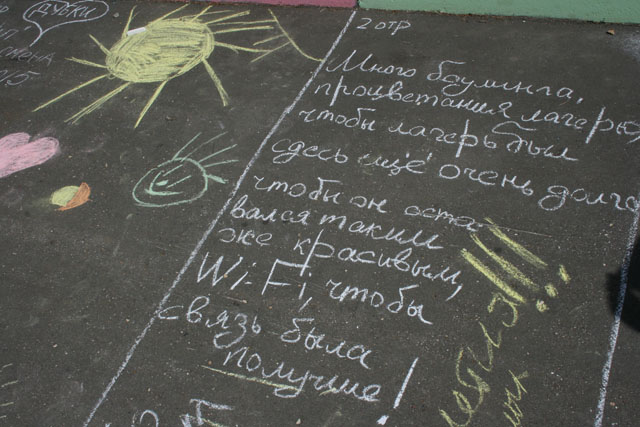 ДУБКИ
015
2 отр
Много боулинга,
процветания лагерю,
чтобы лагерь был
сдесь ещё очень долго
чтобы он оста
вался таким
же красивым,
Wi-Fi, чтобы
связь была
получше!